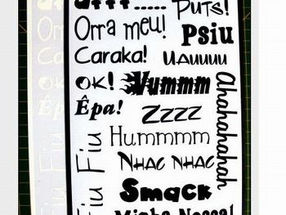 Puts!
Orra meu!
Psiu
Caraka!
UAUUUU
OK!
Vummm
Êpa!
Zzzz
Ahahahahah
Fiu Fiu
Hummmm
Nhac Nhac
Smack
Minha Nossa!